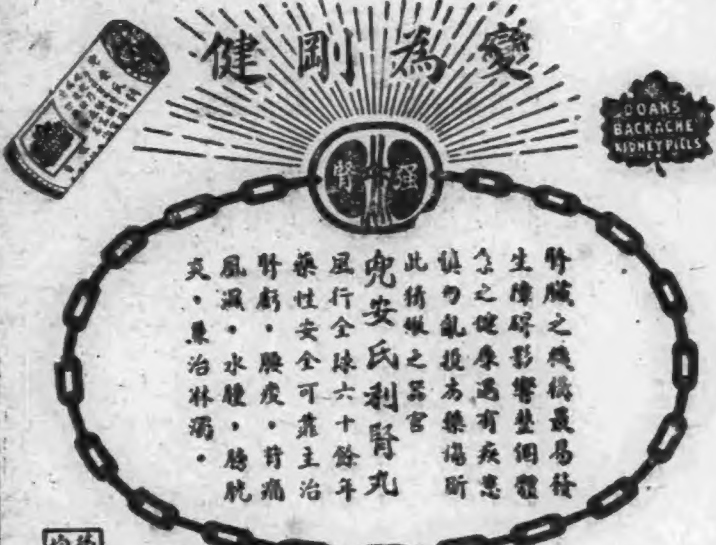 變為剛健
DOANS
BACKACHE
KIDNEY PILLS
强腎
腎臟之機構最易發
生障碍影響整個體
之健康遇有疾患
慎勿亂投藥傷
此精緻之器官
兜安氏利腎丸
風行全球六十餘年
藥性安全可靠主治
腎虧・腰痠・背痛
風濕・水腫・膀胱
炎・兼治淋濁・